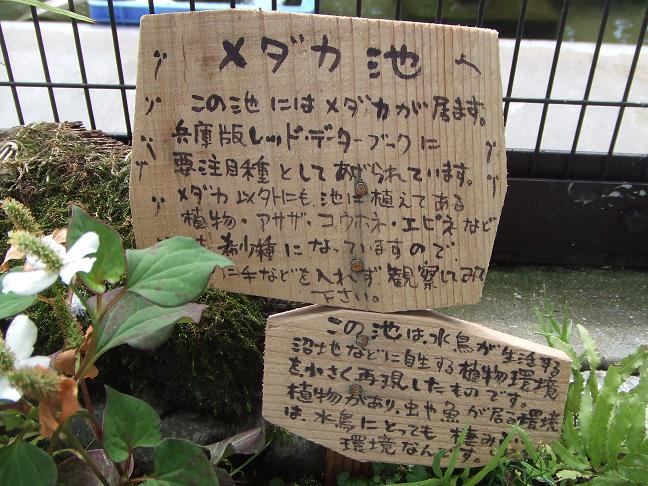 メダカ池
この池にはメダカが居ます。
兵庫版レッド・データーブックに
要注目種としてあげられています。
メダカ以外にも池に植えてある
植物・アサザ・コウホネ・エビネなど
も希少種になっていますので、
手などを入れず観察してみて
下さい。
この池は、水鳥が生活する
沼地などに自生する植物環境
を小さく再現したものです。
植物があり、虫や魚が居る環境
は、水鳥にとっても棲み
環境なんです。